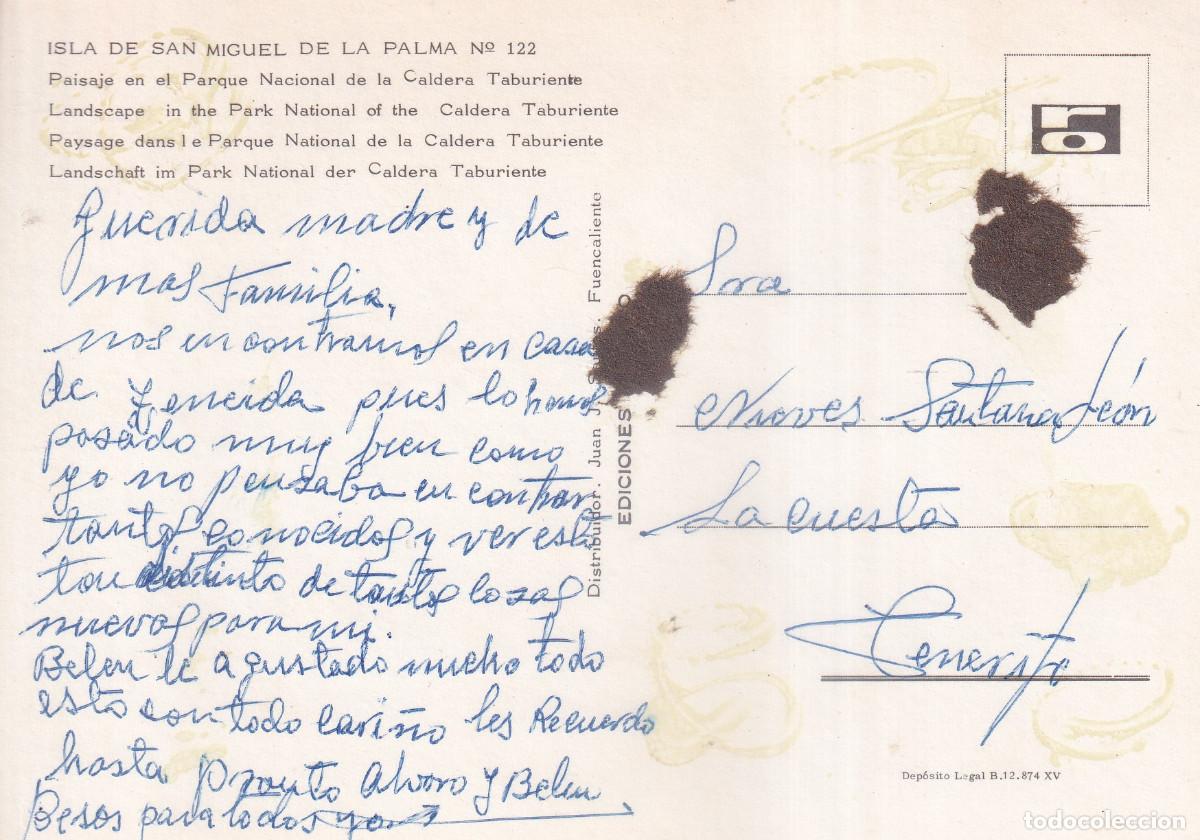 ISLA DE SAN MIGUEL DE LA PALMA Nº 122
Paisaje en el Parque Nacional de la Caldera Taburiente
Landscape in the Park National of the Caldera Taburiente
Paysage dans le Parque National de la Caldera Taburiente
Landschaft im Park National der Caldera Taburiente
Querida madre y de
mas Familia,
nos encontramos en casa
de pues lo hemos
pasado muy bien como
yo no pensaba encontrar
tantos conocidos y ver esto
tan distinto de tantas cosas
nuevas para mi.
Belen le a gustado mucho todo
esto con todo cariño les Recuerdo
hasta pronto Alvaro y Belen
Besos para todos
Distribuidor. Juan J. Fuencaliente
EDICIONES
Sra
Nieves Santana León
La cuesta
Tenerife
Depósito Legal B.12.874 XV
todocoleccion